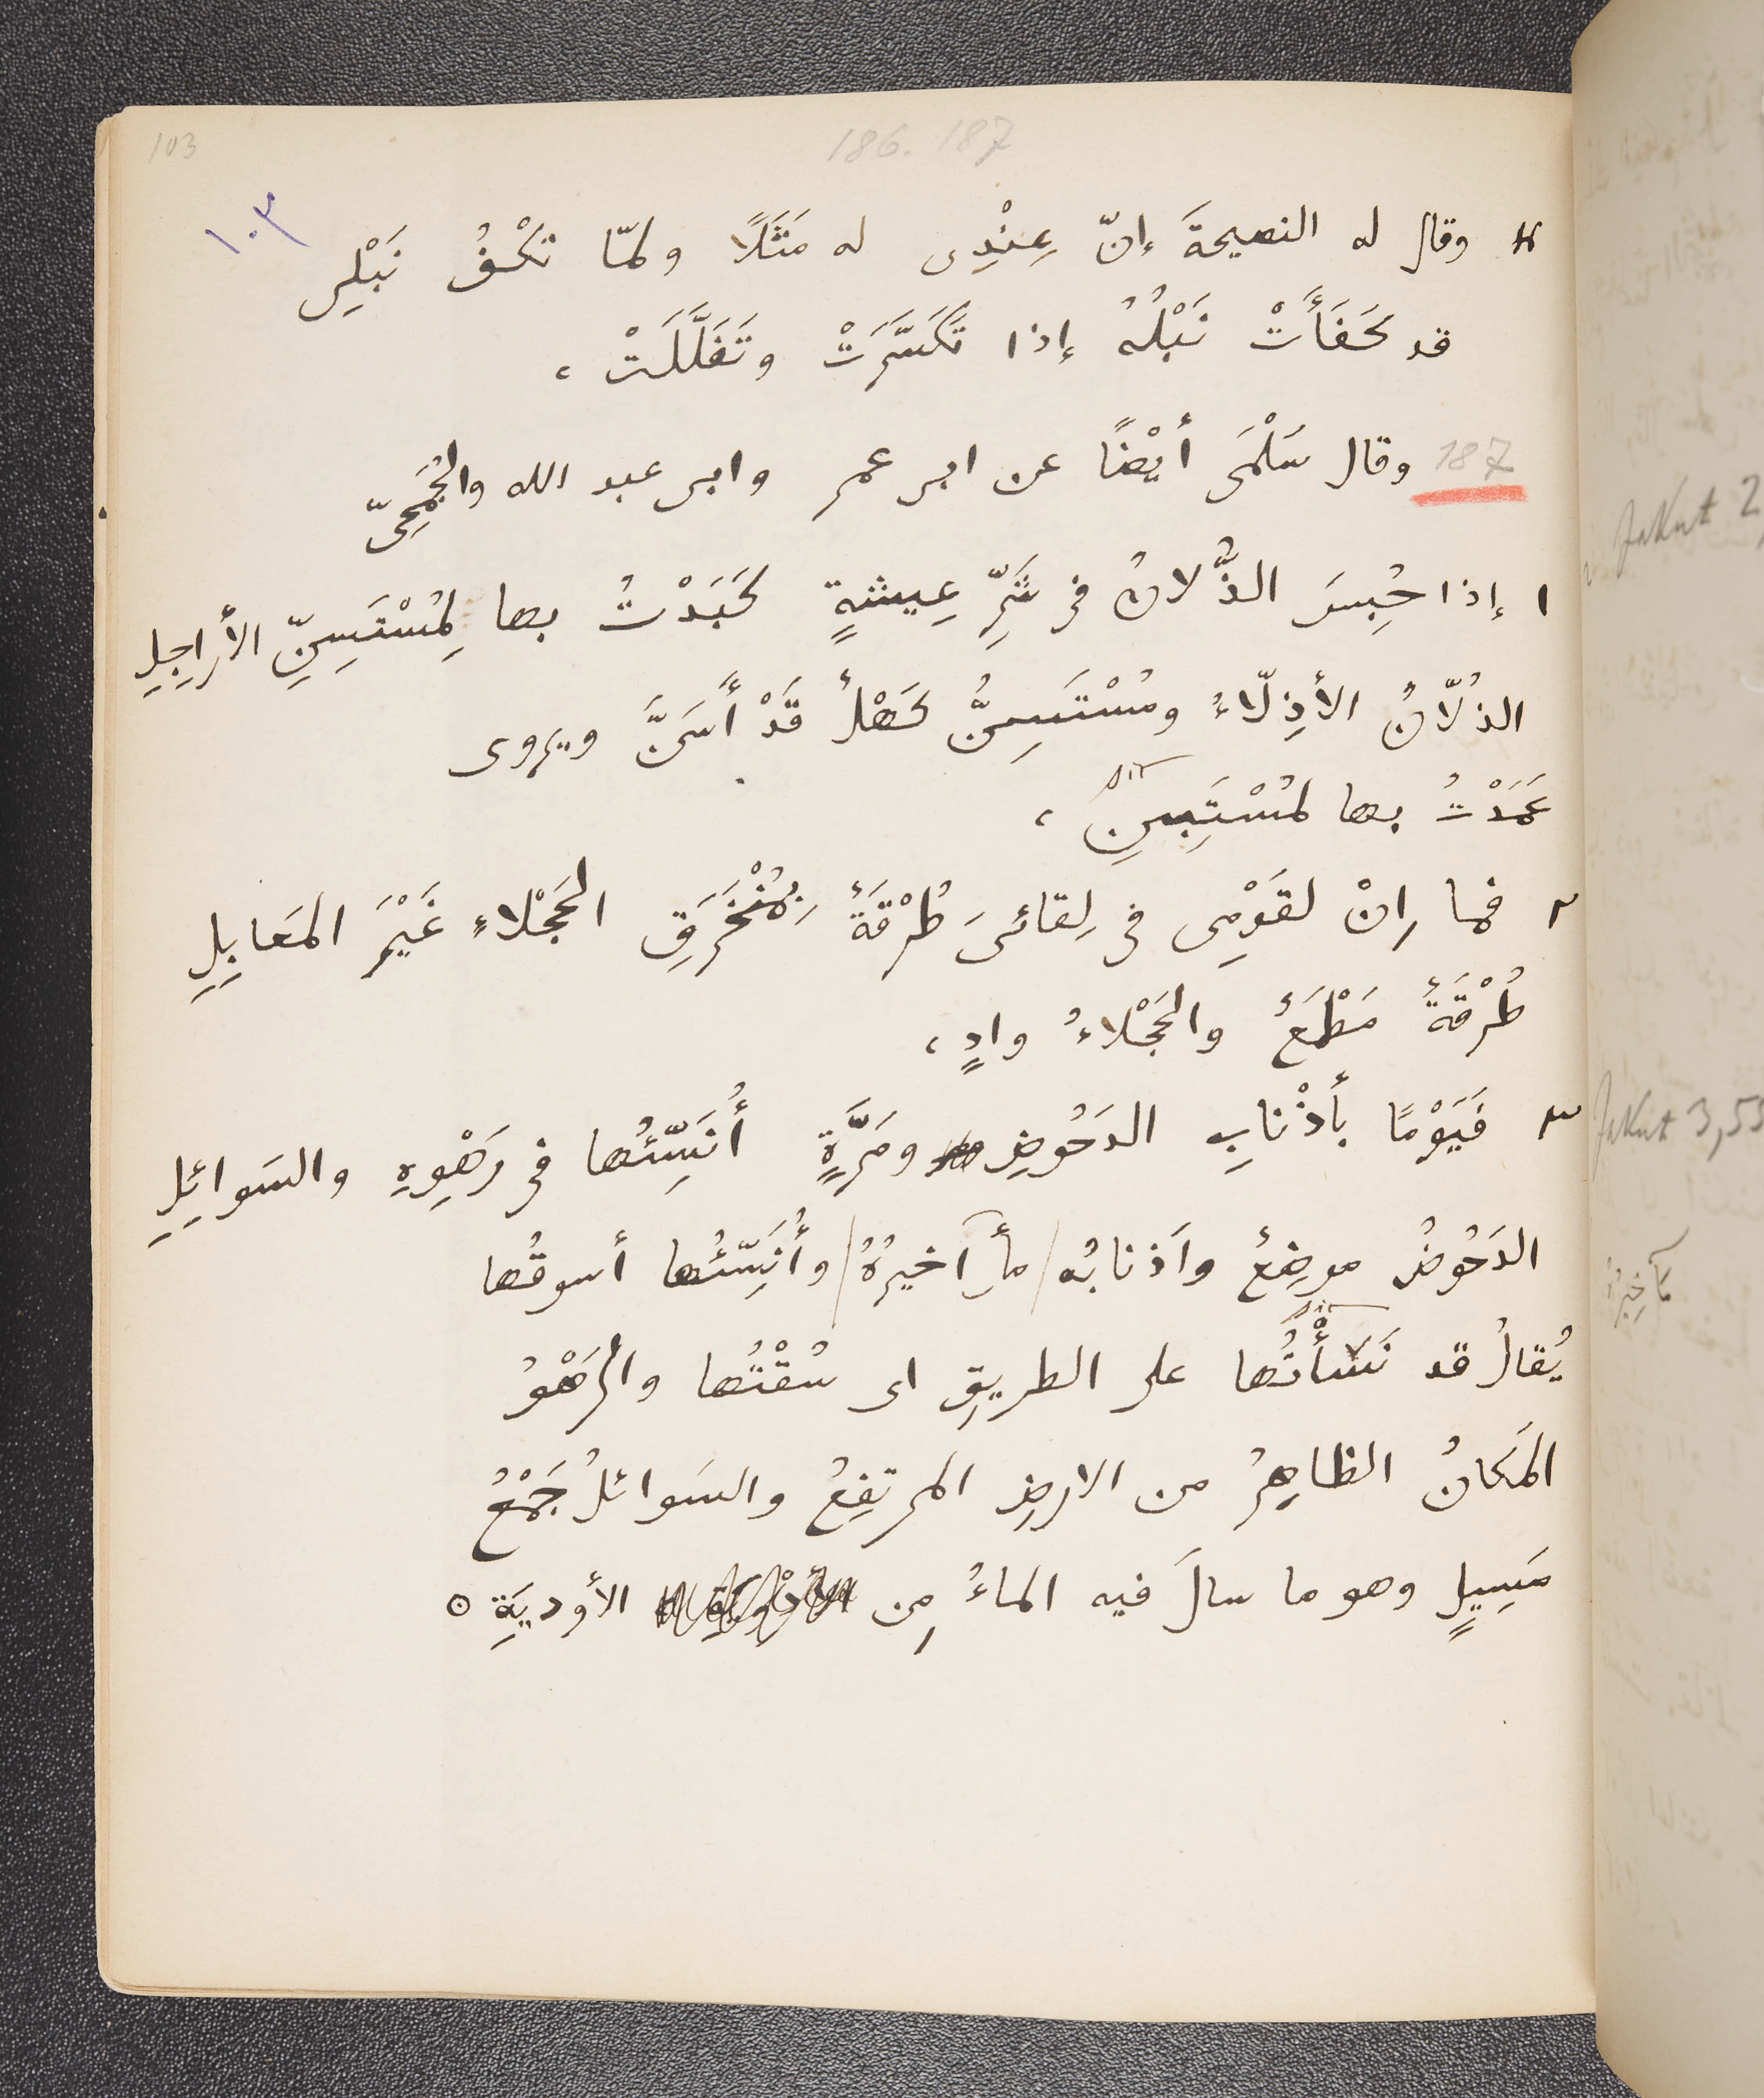 103
186. 187
١٠٣
وقال له النصيحةَ إنّ عِنْدِى له مَثَلًا ولمّا تكْفُ نَبْلِى
قد كَفَأَتْ نَبْلُهُ إذا تَكَسَّرَتْ وتَفَلَّلَتْ ،
187 وقال سَلْمَى أيْضًا عن ابى عمرٍ وابى عبد الله والجُمَحِىّ
١ إذا حُبِسَ الذُّلانُ فى شَرِّ عِيشةٍ كَبَدْتُ بها لِمُسْتَسِنِّ الأراجِلِ
الذُلّانُ الأذِلّاءُ ومُسْتَسِنُّ كَهْلٌ قَدْ أَسَنَّ ويروى
sic
عَمَدْتُ بها لمُسْتَبِينِ ،
٢ فما اِنْ لقَوْمِى فى لِقائىَ طُرْقَةٌ بِمُنْخَرَقِ الحَجْلاءِ غَيْرَ المَعابِلِ
طُرْقَةٌ مَطْمَعٌ والحَجْلاءُ وادٍ ،
٣ فَيَوْمًا بأذْنابِ الدَحُوضِ ومَرَّةٍ أُنَسِّئُها فى رَهْوِهِ والسَوائِلِ
الدَحُوضُ موضِعٌ واَذنابُه مأَآخيرُهُ وأُنَسِّئُها أسوقُها
sic
يُقالُ قد نَسَأْتُها على الطريقِ اى سُقْتُها والرَهْوُ
المَكانُ الظاهِرُ من الارضِ المرتفِعُ والسَوائلُ جَمْعُ
مَسِيلٍ وهو ما سالَ فيه الماءُ مِن الأوديَةِ ○
Jakut 2
Jakut 3,55
مآخِيرُهُ